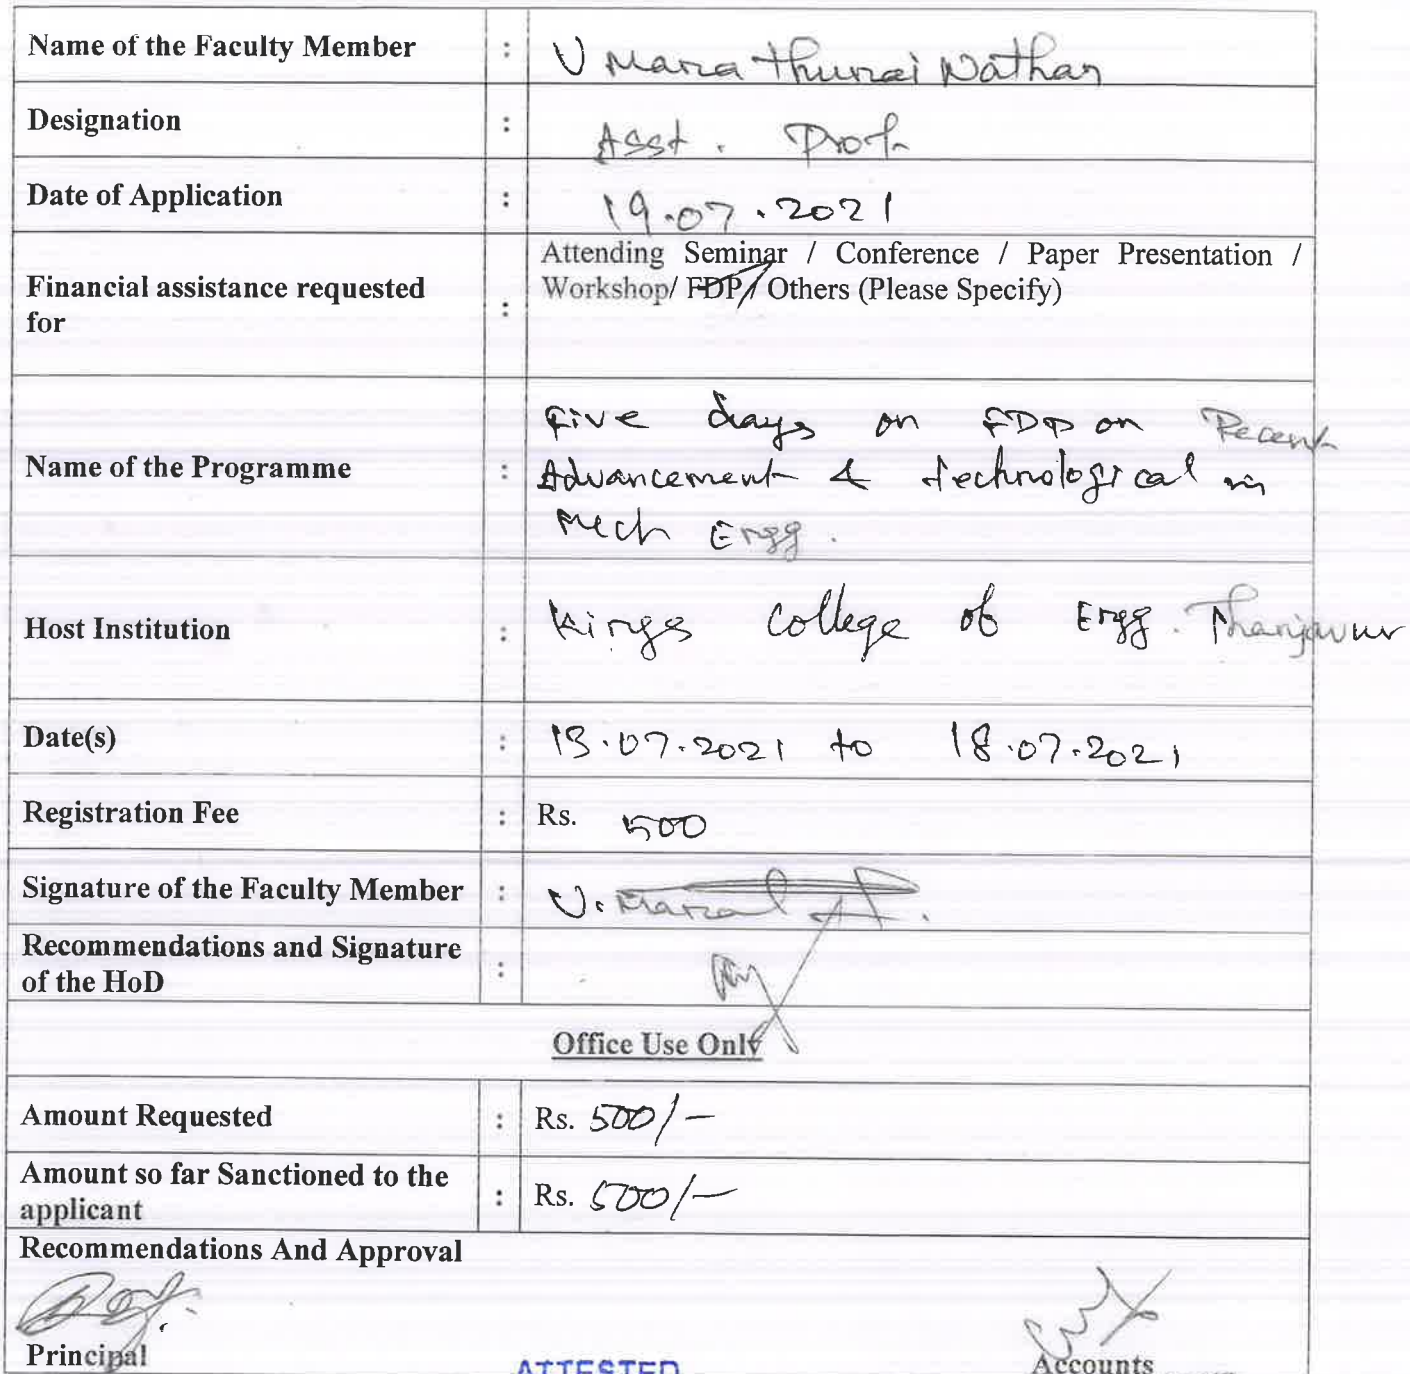 Name of the Faculty Member : U Maria Thurai Nathan
Designation : Asst. Prof
Date of Application : 19.07.2021
Financial assistance requested for : Attending Seminar / Conference / Paper Presentation /
Workshop/ FDP / Others (Please Specify)
Name of the Programme : Five days on FDP on Recent
Advancement & technological in
Mech Engg.
Host Institution : Kings College of Engg. Thanjavur
Date(s) : 13.07.2021 to 18.07.2021
Registration Fee : Rs. 500
Signature of the Faculty Member :
Recommendations and Signature
of the HoD :
Office Use Only
Amount Requested : Rs. 500/-
Amount so far Sanctioned to the
applicant : Rs. 500/-
Recommendations And Approval
Principal
Accounts
ATTESTED